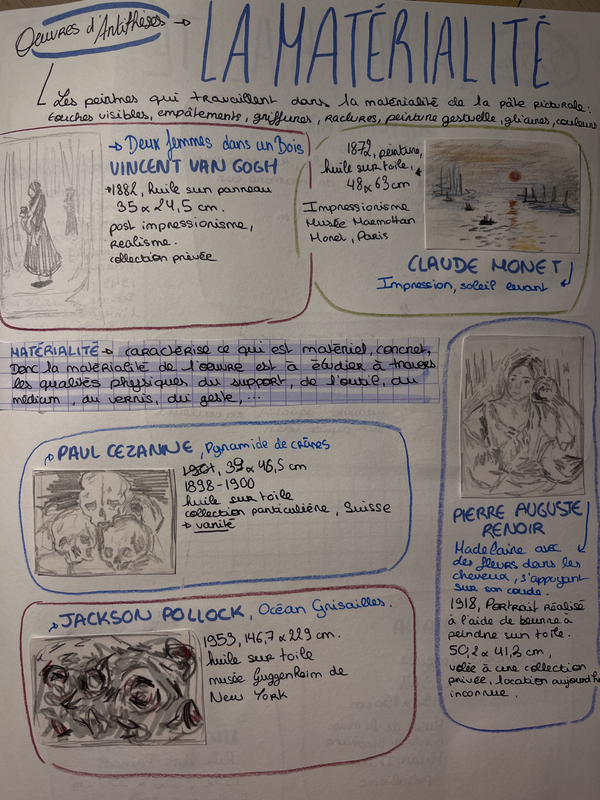 Oeuvres d'Antithèses → LA MATÉRIALITÉ
Les peintres qui travaillent dans la matérialité de la pâte picturale:
touches visibles, empâtements, griffures, raclures, peinture gestuelle, glianes, couleurs
→ Deux femmes dans un Bois
VINCENT VAN GOGH
1882, huile sur panneau
35 x 24,5 cm.
post impressionisme,
réalisme.
collection privée
1872, peinture,
huile sur toile,
48 x 63 cm
Impressionisme
Musée Marmottan
Monet, Paris
CLAUDE MONET
Impression, soleil levant
MATÉRIALITÉ → caractérise ce qui est matériel, concret,
Donc la matérialité de l'oeuvre est à étudier à travers
les qualités physiques du support, de l'outil, du
médium, du vernis, du geste,...
→ PAUL CEZANNE, Pyramide de crânes
1901, 39 x 46,5 cm
1898-1900
huile sur toile
collection particulière, Suisse
→ vanité
PIERRE AUGUSTE
RENOIR
Madelaine avec
des fleurs dans les
cheveux, s'appuyant
sur son coude.
1918, Portrait réalisé
à l'aide de beurre à
peindre sur toile.
50,2 x 41,3 cm,
volée à une collection
privée, location aujourd'h
inconnue.
→ JACKSON POLLOCK, Océan Grisailles.
1953, 146,7 x 229 cm.
huile sur toile
musée Guggenheim de
New York